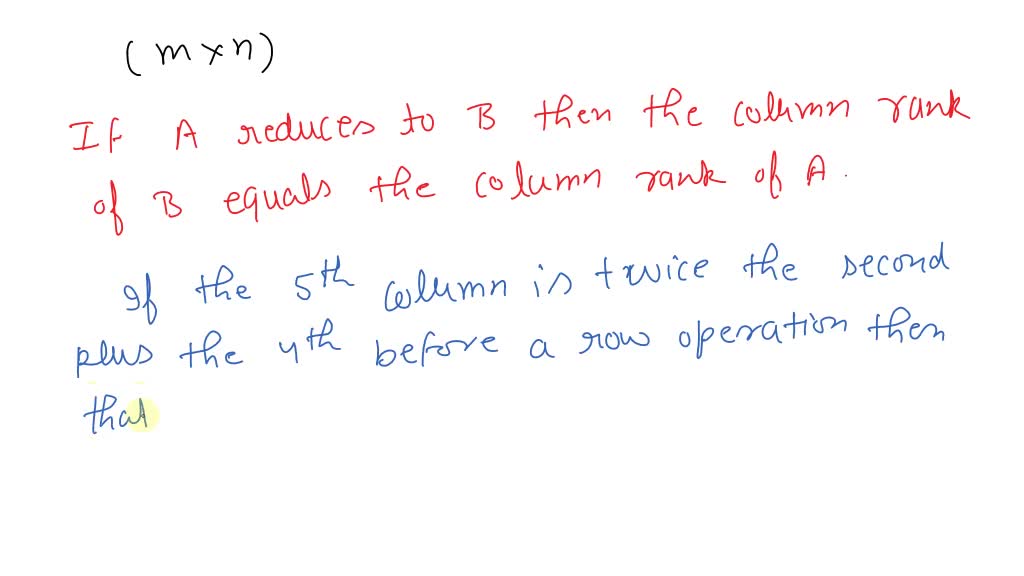 (m×n)
If A reduces to B then the column rank
of B equals the column rank of A.
If the 5th column is twice the second
plus the 4th before a row operation then
that